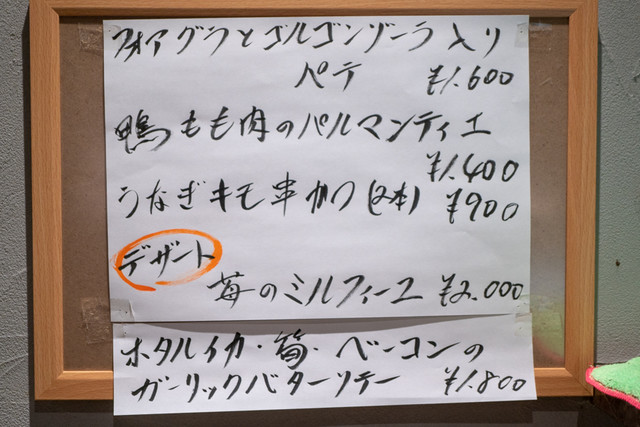 フォアグラとゴルゴンゾーラ入り
パテ ¥1.600
鴨もも肉のパルマンティエ
¥1.400
うなぎキモ串かつ(2本) ¥900
デザート
苺のミルフィーユ ¥2.000
ホタルイカ・筍・ベーコンの
ガーリックバターソテー ¥1.800